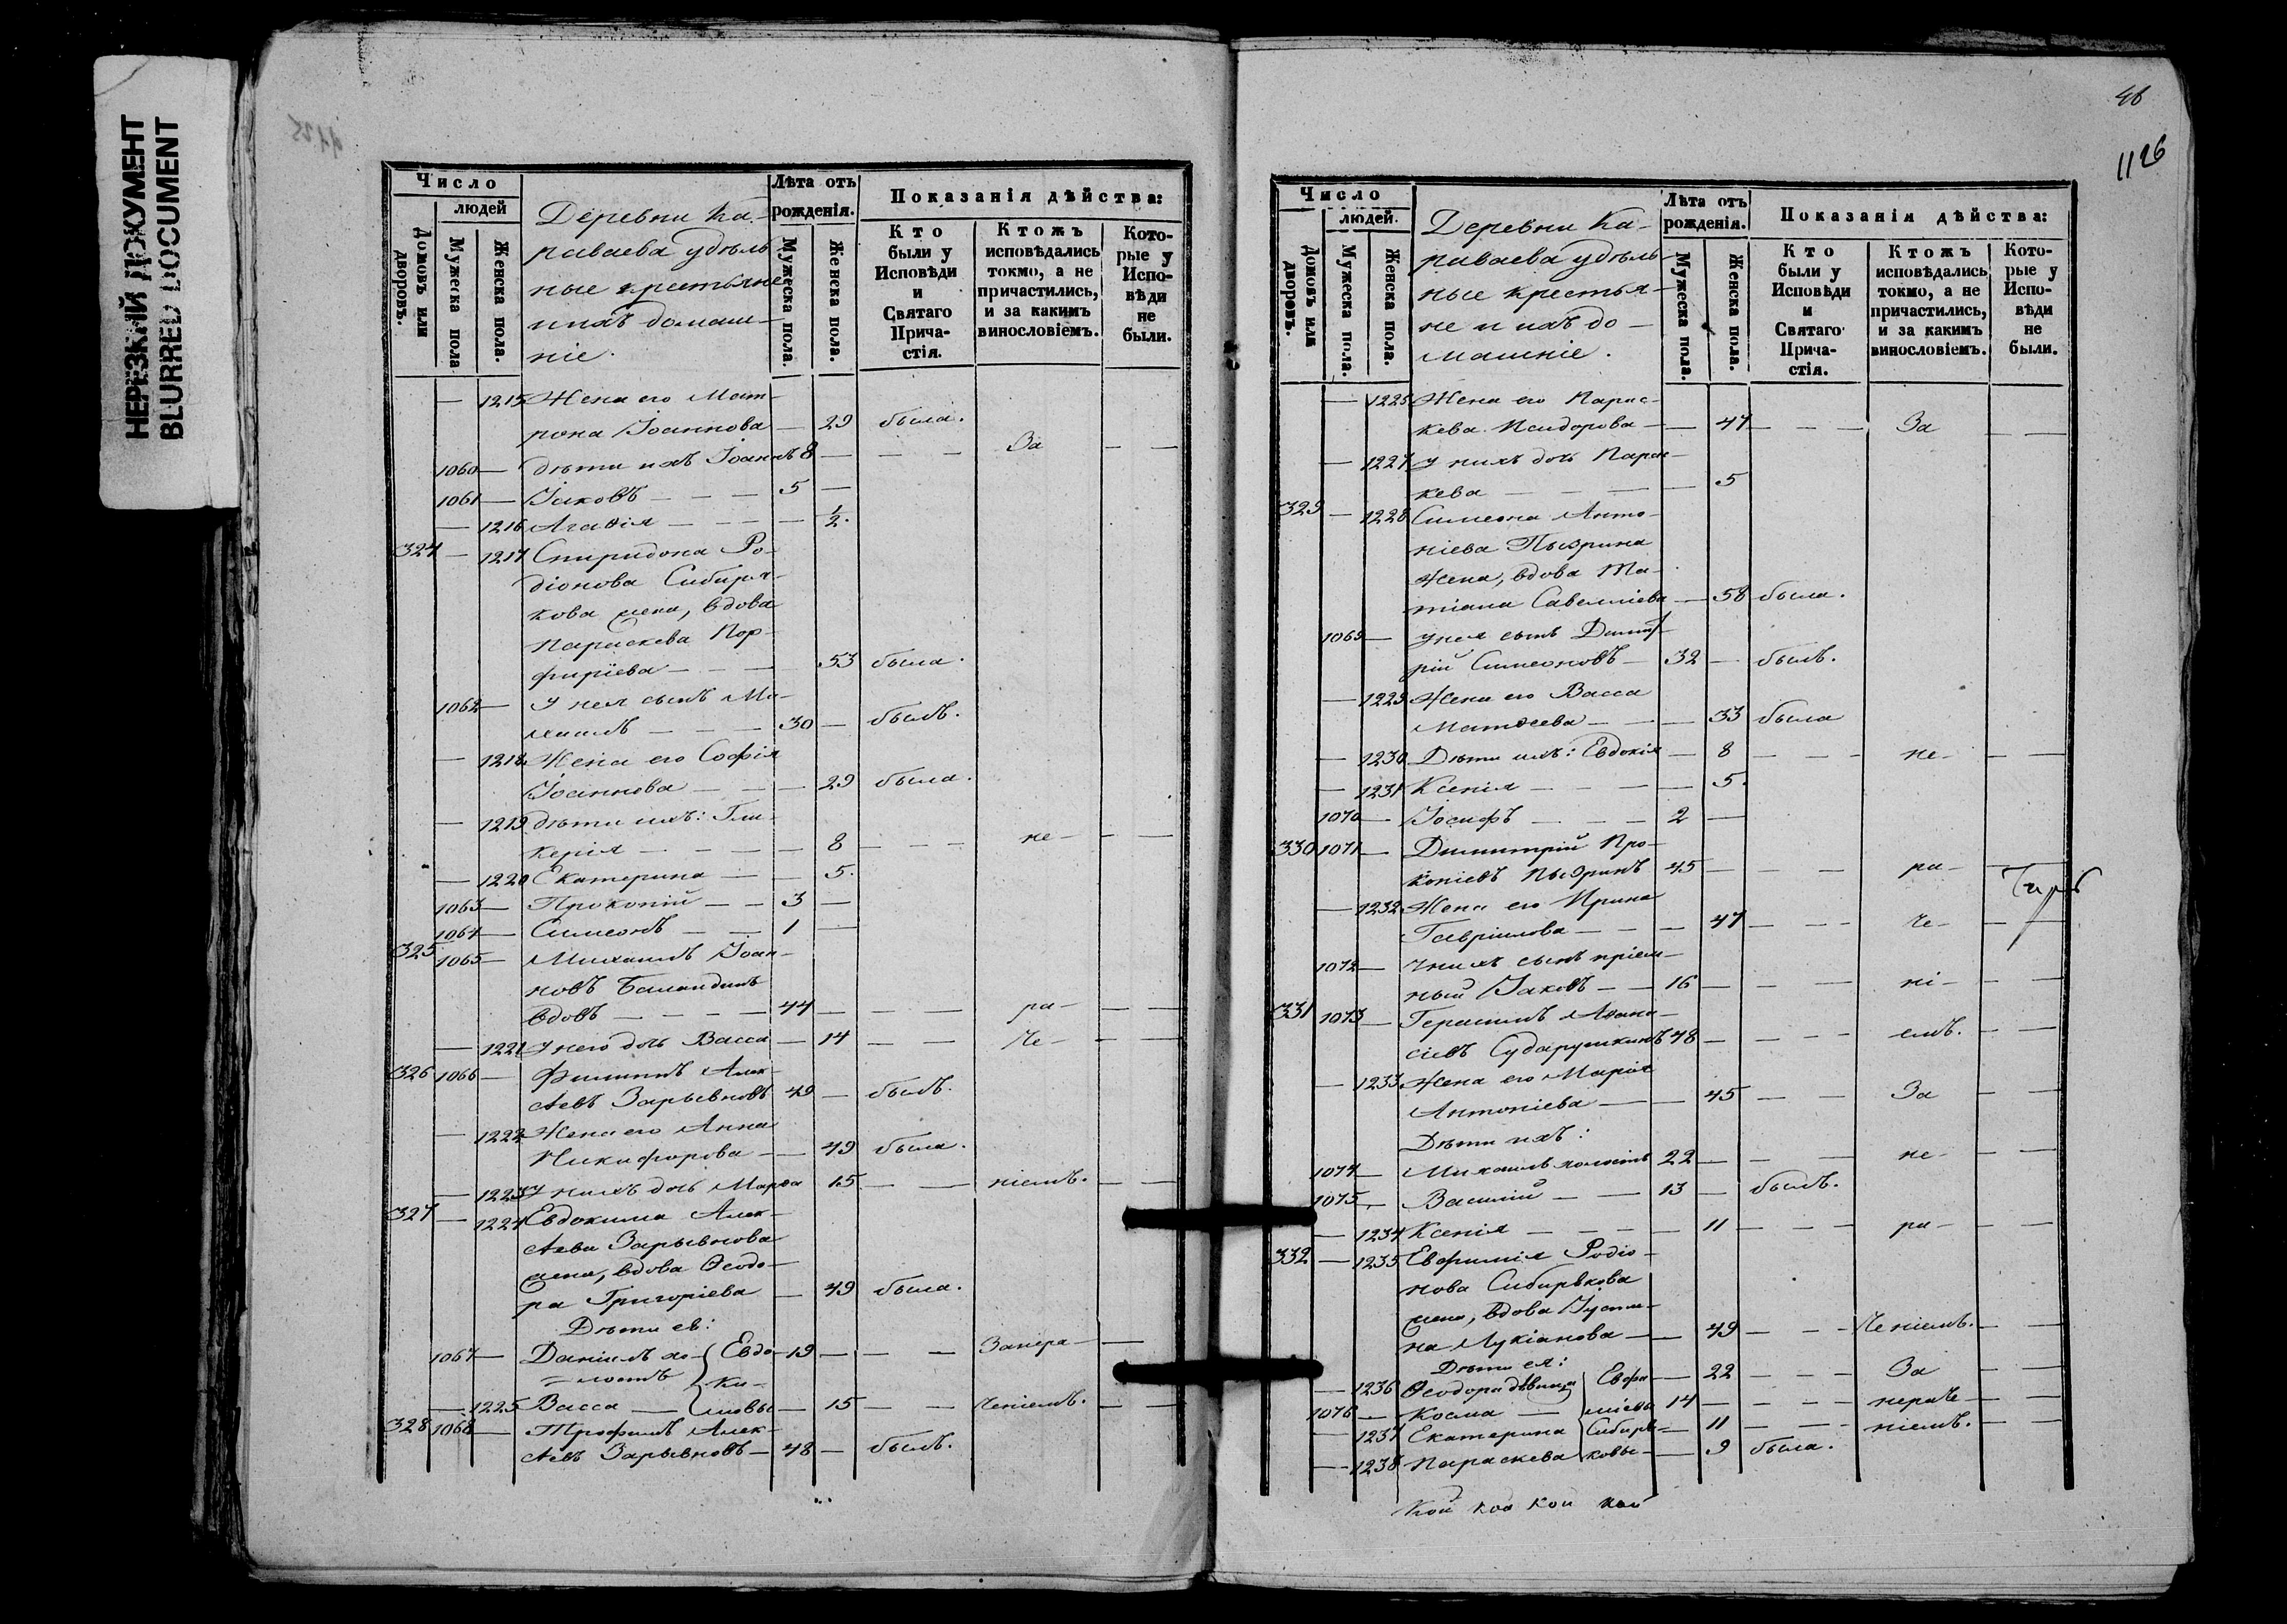 НЕРЕЗКИЙ ДОКУМЕНТ
BLURRED DOCUMENT
1125
Число
людей
Домовъ или дворовъ.
Мужеска пола
Женска пола.
Деревни Ка-
раваева удѣль
ные крестьяне
и ихъ домаш-
ніе.
Лѣта отъ рожденія.
Мужеска пола.
Женска пола.
Показанія дѣйства:
Кто были у Исповѣди и Святаго Прича-стія.
Ктожъ исповѣдались токмо, а не причастились, и за какимъ винословіемъ.
Кото-рые у Испо-вѣди не были.
— 1215 Жена его Мат-
рона Іоаннова — 29 была.
1060 — дѣти ихъ Іоаннъ 8 — — — За — —
1061 — Іаковъ — — — 5 —
— 1216 Агаѳія — — — — 1/2.
324 — 1217 Спиридона Ро-
діонова Сибиря-
кова жена, вдова
Параскева Пор-
фиріева — — — 53 была.
1062 — У нея сынъ Ми-
хаилъ — — — 30 — былъ.
— 1218 Жена его Софія
Іоаннова — — — 29 была.
— 1219 дѣти ихъ: Гли-
керія — — — — — 8 — — — не — — —
— 1220 Екатерина — — — 5.
1063 — Прокопій — — 3 —
1064 — Симеонъ — — 1 —
325 1065 — Михаилъ Іоан-
новъ Баландинъ
вдовъ — — — — 44 — — — ра — — —
— 1221 У него дочь Васса — 14 — — Че — — —
326 1066 — Филиппъ Алек-
сѣевъ Зарывновъ 49 — былъ.
— 1222 Жена его Анна
Никифорова — — 49 была.
— 1223 У нихъ дочь Марѳа 15 — — ніемъ. — —
327 — 1224 Евдокима Алек-
сѣева Зарывнова
жена, вдова Ѳеодо-
ра Григоріева — 49 была.
Дѣти еѣ:
1067 — Даніилъ хо- Евдо- 19 — — — Занера — —
лостъ ки-
— 1225 Васса — мовы — 15 — — Ченіемъ. — —
328 1068 — Трофимъ Алек-
сѣевъ Зарывновъ — 48 — былъ.
46
1126
Число
людей.
Домовъ или дворовъ.
Мужеска пола.
Женска пола.
Деревни Ка-
раваева удѣль-
ные крестья-
не и ихъ до-
машніе.
Лѣта отъ рожденія.
Мужеска пола.
Женска пола.
Показанія дѣйства:
Кто были у Исповѣди и Святаго Прича-стія.
Ктожъ исповѣдались токмо, а не причастились, и за какимъ винословіемъ.
Кото-рые у Испо-вѣди не были.
— 1225 Жена его Парас-
кева Исидорова — — 47 — — — За — —
— 1227 У нихъ дочь Парас-
кева — — — — 5
329 — 1228 Симеона Анто-
ніева Пызрина
жена, вдова Та-
тіана Савеліева — 58 была.
1069 — У нея сынъ Димит-
рій Симеоновъ — 32 — былъ.
— 1229 Жена его Васса
Матѳеева — — — 33 была
— 1230 Дѣти ихъ: Евдокія — 8 — — — не — — —
— 1231 Ксенія — — — — — 5.
1070 — Іосифъ — — — 2 —
330 1071 — Димитрій Про-
копіевъ Пызринъ 45 — — — ра — —
— 1232 Жена его Ирина
Гавріилова — — — 47 — — — Че — —
1072 — У нихъ сынъ пріем-
ный Іаковъ — — 16 — — — ні — — —
331 1073 — Герасимъ Аѳана-
сіевъ Сударушкинъ 48 — — — емъ. — —
— 1233 Жена его Марія
Антоніева — — 45 — — За — —
Дѣти ихъ:
1074 — Михаилъ холостъ 22 — — — не — — —
1075 — Василій — — 13 — былъ.
— 1234 Ксенія — — — — 11 — — — ра — — —
332 — 1235 Евфимія Родіо-
нова Сибирякова
жена, вдова Іусти-
на Лукіанова — — 49 — — — Ченіемъ. — —
Дѣти ея:
— 1236 Ѳеодора дѣвица Евфи- — 22 — — — За — —
1076 — Косма — міевы 14 — — — нераче — —
— 1237 Екатерина Сибиря- — 11 — — — ніемъ. — —
— 1238 Параскева ковы — — 9 была.